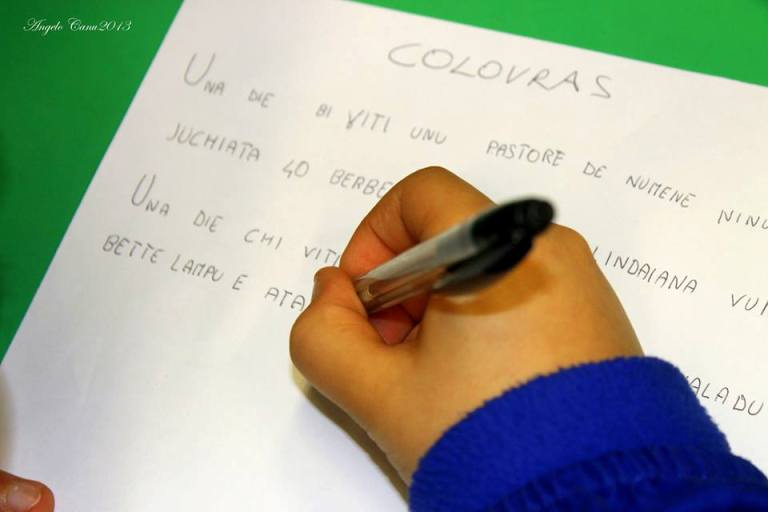 Angelo Canu2013
COLOVRAS
UNA DIE BI VITI UNU PASTORE DE NUMENE NINU
JUCHIATA 40 BERBE
UNA DIE CHI VITI LINDAIANA VUI
BETTE LAMPU E ATA ALADU